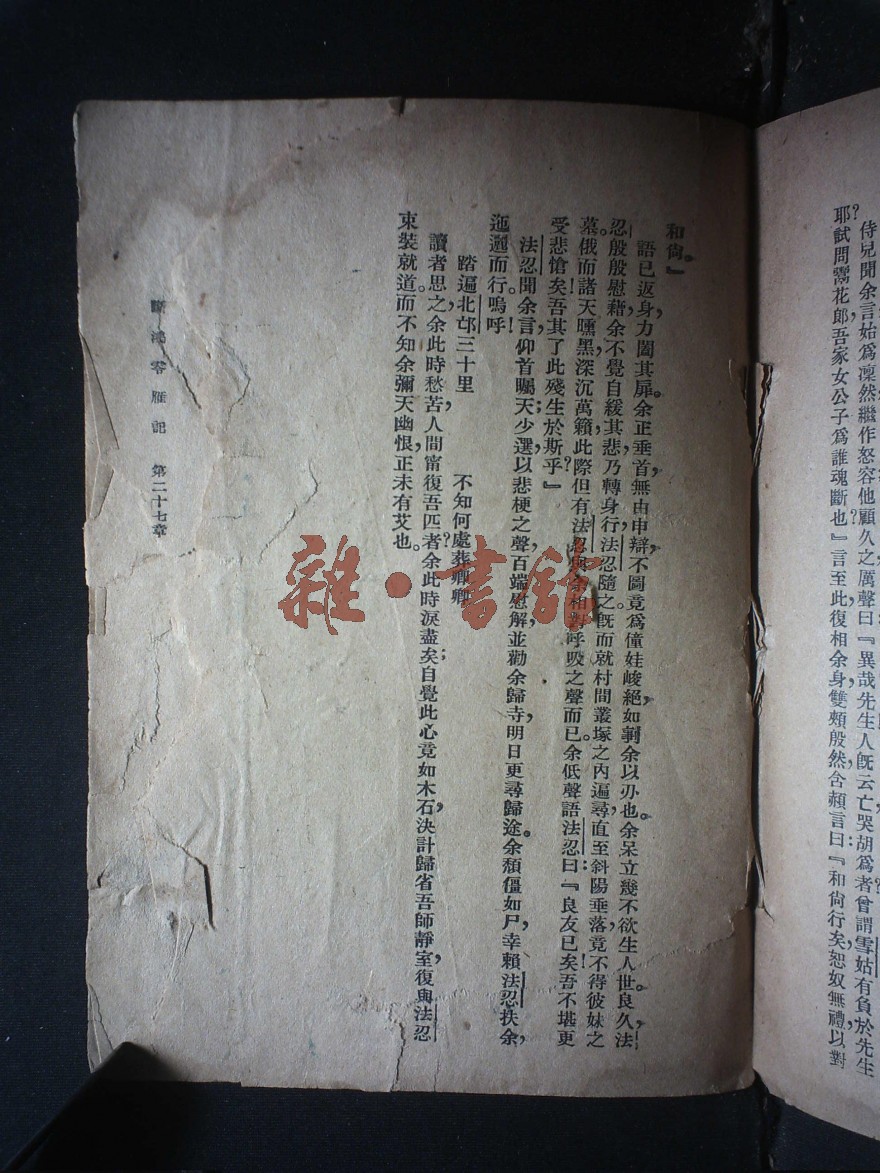 侍兒聞余言，始爲凜然，繼作怒容他顧，久之，厲聲曰：『異哉先生人旣云亡，哭胡爲者？曾謂雪姑有負於先生
耶？試問鬻花郎，吾家女公子爲誰魂斷也？』言至此，復相余身，雙頰殷然，含赬言曰：『和尙行矣，恕奴無禮，以對
和尙。』
語已返身，力闔其扉。余正垂首，無由申辯，不圖竟爲僮娃峻絕，如剚余以刃也。余呆立幾不欲生人世。良久，法
忍殷殷慰藉，余不覺自緩其悲，乃轉身行，法忍隨之。旣而就村間叢塚之內遍尋，直至斜陽垂落，竟不得彼妹之
墓。俄而諸天曛黑，深沉萬籟，此際但有法忍與余相對呼吸之聲而已。余低聲語法忍曰：『良友已矣！吾不堪更
受悲愴矣！吾其了此殘生於斯乎？』
法忍聞余言，仰首矚天，少選，以悲梗之聲，百端慰解，並勸余歸寺，明日更尋歸途。余頹僵如尸，幸賴法忍扶余，
迤邐而行。嗚呼！
踏遍北邙三十里　不知何處葬卿卿
讀者思之，余此時愁苦，人間甯復吾匹者？余此時淚盡矣；自覺此心竟如木石，決計歸省吾師靜室，復與法忍
束裝就道。而不知余彌天幽恨，正未有艾也。
斷鴻零雁記　第二十七章
雜·書館